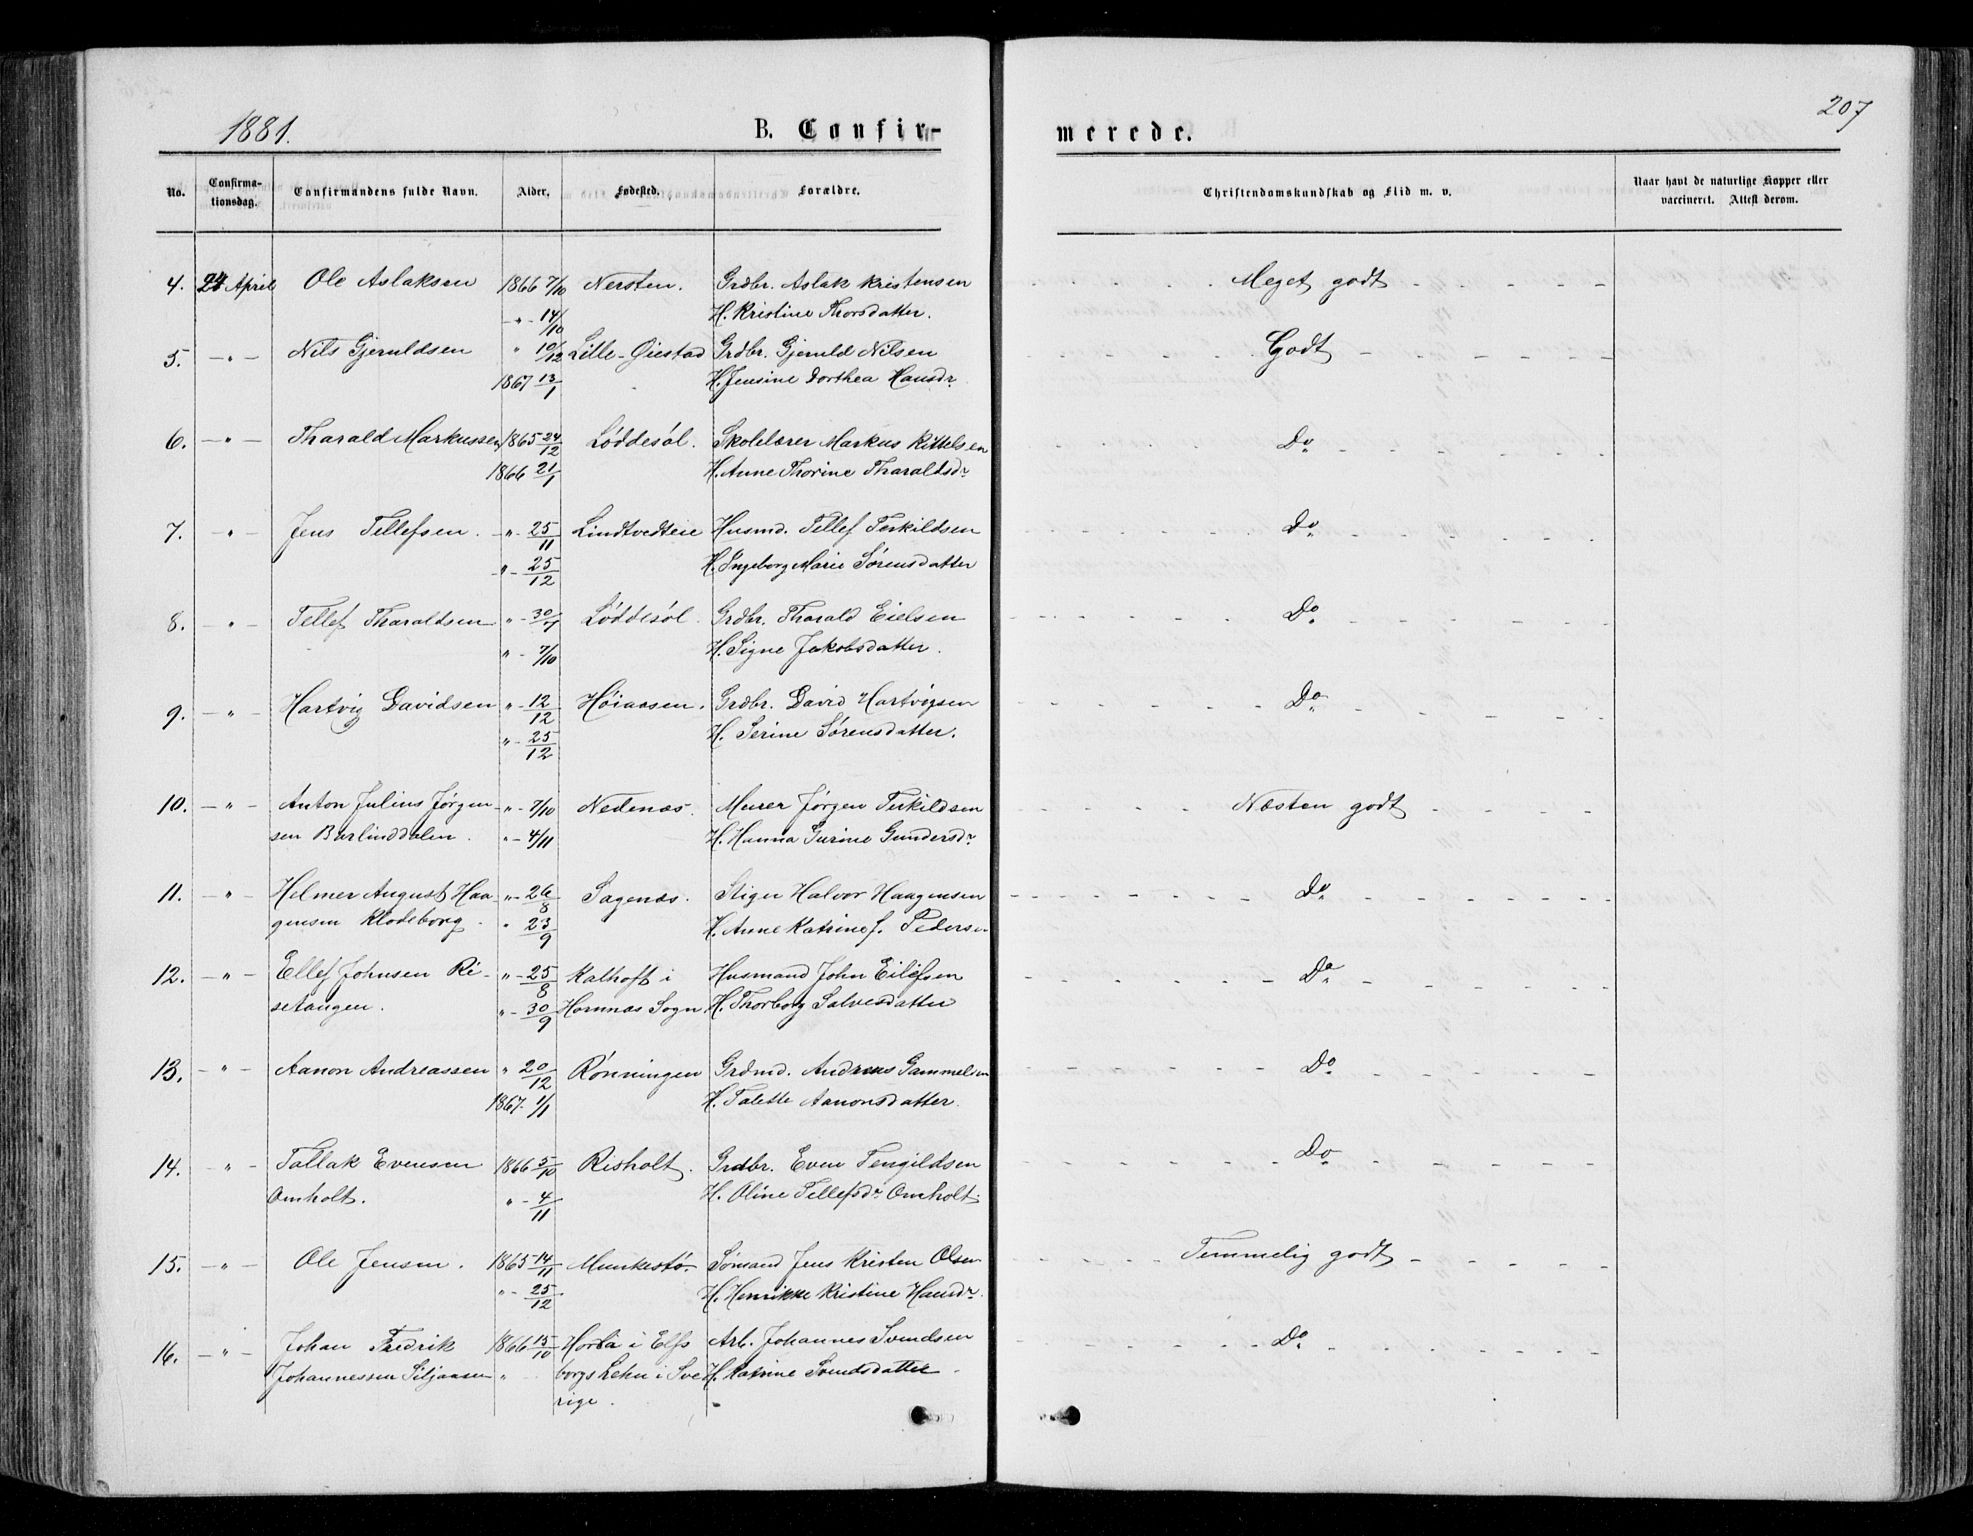 1881.
B. Confir-
merede.
207
No.
Confirma-
tionsdag.
Confirmandens fulde Navn.
Alder.
Fødested.
Forældre.
Christendomskundskab og Flid m. v.
Naar havt de naturlige Kopper eller
vaccineret. Attest derom.
4. 24 April Ole Aslaksen 1866 7/10 Nersten. Grdbr. Aslak Kristensen Meget godt
" 14/10 H. Kristine Thorsdatter.
5. " Nils Gjeruldsen " 10/12 Lille-Øiestad Grdbr. Gjeruld Nilsen Godt
1867 13/1 H. Jensine Dorthea Hansdr.
6. " Tharald Markussen 1865 24/12 Løddesøl. Skolelærer Markus Kittelsen Do
1866 21/1 H. Anne Thorine Tharaldsdr.
7. " Jens Tellefsen. " 25/11 Lindtvedteie Husmd. Tellef Terkildsen Do
" 25/12 H. Ingeborg Marie Sørensdatter
8. " Tellef Tharaldsen " 30/7 Løddesøl. Grdbr. Tharald Eielsen Do
" 7/10 H. Signe Jakobsdatter.
9. " Hartvig Davidsen " 12/12 Høiaasen. Grdbr. David Hartvigsen Do
" 25/12 H. Serine Sørensdatter.
10. " Anton Julius Jørgen " 7/10 Nedenæs. Murer Jørgen Terkildsen Næsten godt
sen Barlinddalen. " 4/11 H. Hanna Gurine Gundersdr.
11. " Helmer August Haa " 26/8 Sagenæs. Stiger Halvor Haagensen Do
gensen Klodeborg. " 23/9 H. Anne Katrine f. Peders
12. " Ellef Johnsen Ri- " 25/8 Kalhoft i Husmand John Eilefsen Do
setangen. " 30/9 Hornnæs Sogn. H. Thorborg Salvesdatter
13. " Aanon Andreassen " 20/12 Rønningen Grdmd. Andreas Gammelsen Do
1867. 1/1 H. Talette Aanonsdatter.
14. " Tallak Evensen 1866 5/10 Risholt. Grdbr. Even Tengildsen Do
Omholt. " 4/11 H. Oline Tellefsdr. Omholt.
15. " Ole Jensen. 1865 14/11 Munkestø. Sømand Jens Kristen Olsen Temmelig godt
" 25/12 H. Henrikke Kristine Hansdr.
16. " Johan Fredrik 1866 15/10 i Elfs Arb. Johannes Svendsen Do
Johannessen Siljaasen " borgs Lehn i Sve H. Katrine Svendsdatter
rige.